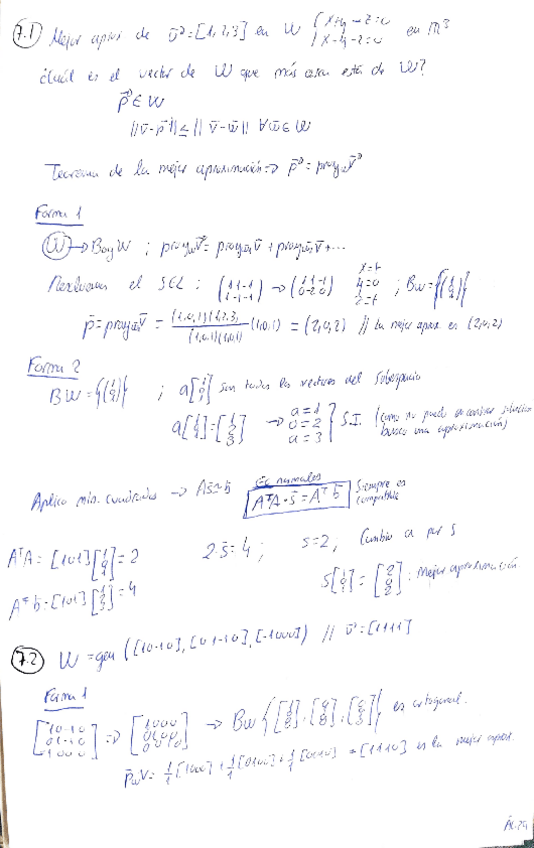 7.1 Mejor aprox de v⃗=[1,2,3] en W {x+y-z=0 x-y-z=0 en ℝ³
¿Cuál es el vector de W que más cerca está de
p⃗ ∈ W
||v̄-p̄|| ≤ ||v̄-w̄|| ∀w̄∈W
Teorema de la mejor aproximación ⇒ p⃗ = proy_w v⃗
Forma 1
W → Bog W ; proy_w v⃗ = proy_u₁ v̄ + proy_u₂ v̄ + ...
Resolvemos el SEL : (1 1 -1 / 1 -1 -1) → (1 1 -1 / 0 -2 0) x=t y=0 z=t ; Bw={(1 0 1)}
p̄ = proy_w v̄ = (1,0,1)(1,2,3) / (1,0,1)(1,0,1) (1,0,1) = (2,0,2) // La mejor aprox. es (2,0,2)
Forma 2
BW = {(1 0 1)} ; a[1 0 1] son todos los vectores del subespacio
a[1 0 1] = [1 2 3] → a=1 0=2 a=3 } S.I. (como no puedo encontrar solución busco una aproximación)
Aplico mín. cuadrados → As=b Ec normales AᵀA·s̄=Aᵀb̄ Siempre es compatible
AᵀA = [1 0 1][1 0 1] = 2 2·s̄=4 ; s=2 ; Cambio a por s
Aᵀb̄ = [1 0 1][1 2 3] = 4 s[1 0 1] = [2 0 2] : Mejor aproximación
7.2 W = gen ([1 0 -1 0], [0 1 -1 0], [-1 0 0 0]) // v⃗=[1 1 1 1]
Forma 1
[1 0 -1 0 / 0 1 -1 0 / -1 0 0 0] ⇒ [1 0 0 0 / 0 1 0 0 / 0 0 1 0] → Bw {[1 0 0 0], [0 1 0 0], [0 0 1 0]} es ortogonal.
p̄_w V = 1/1 [1000] + 1/1 [0100] + 1/1 [0010] = [1110] es la mejor aprox.